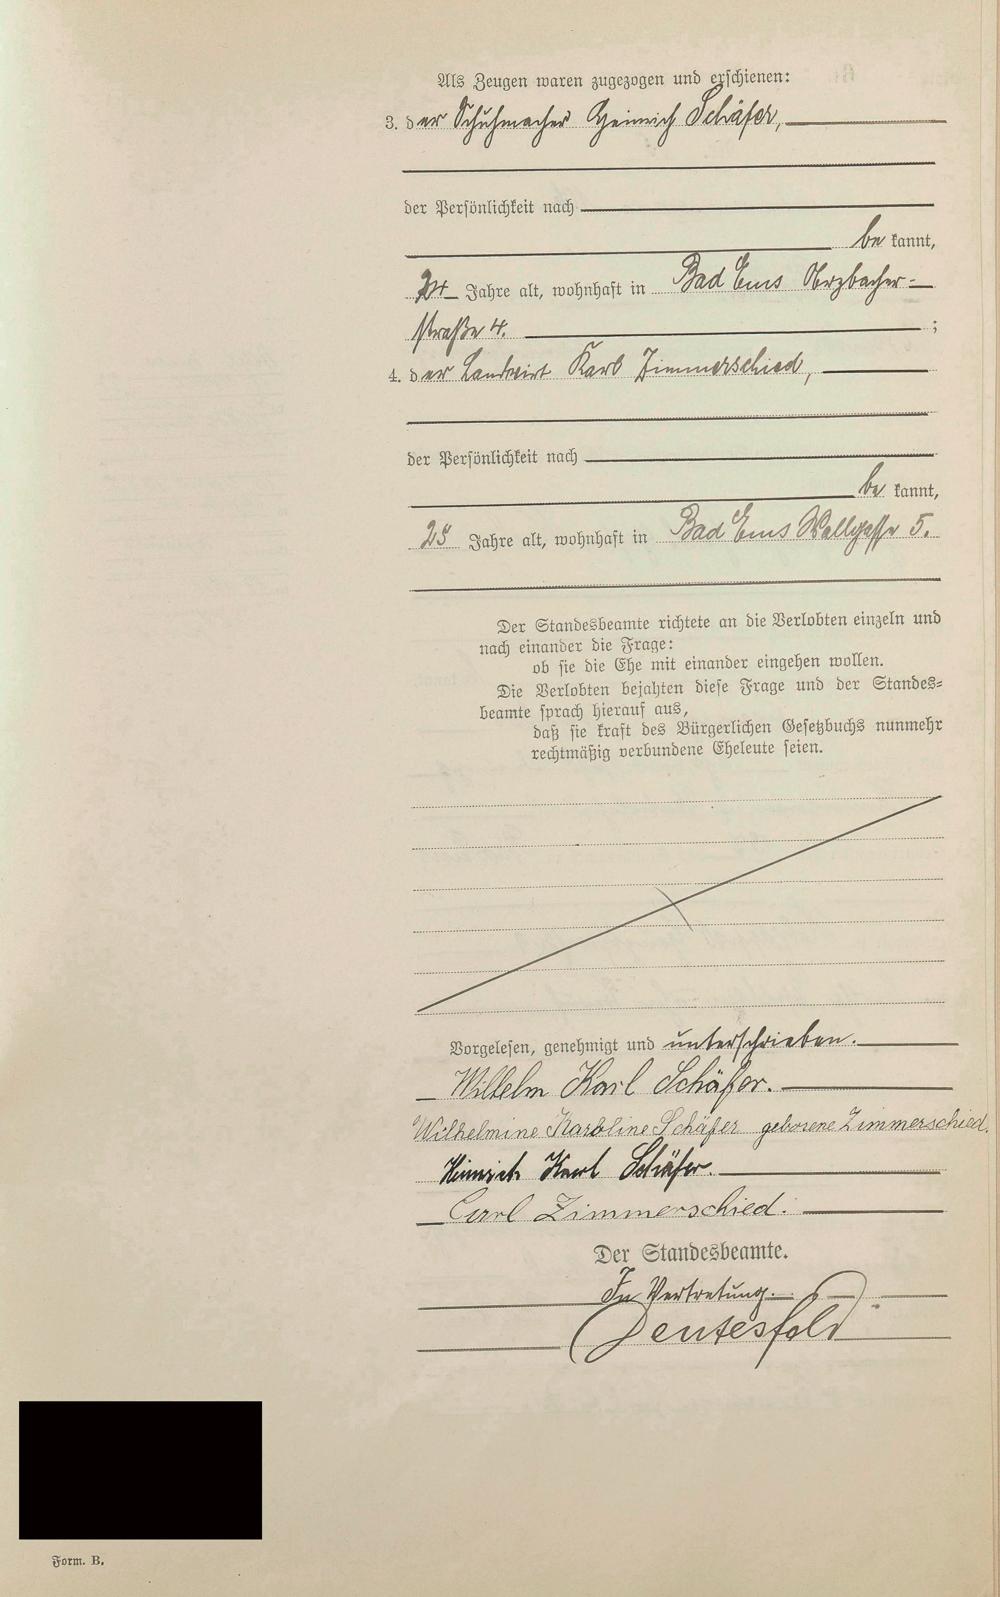 Als Zeugen waren zugezogen und erschienen:
3. der Schuhmacher Heinrich Schäfer,
der Persönlichkeit nach
be kannt,
24 Jahre alt, wohnhaft in Bad Ems
straße 4. ;
4. der Landwirt Karl Zimmerschied,
der Persönlichkeit nach
be kannt,
Jahre alt, wohnhaft in Bad Ems Wallgasse 5.
Der Standesbeamte richtete an die Verlobten einzeln und
nach einander die Frage:
ob sie die Ehe mit einander eingehen wollen.
Die Verlobten bejahten diese Frage und der Standes-
beamte sprach hierauf aus,
daß sie kraft des Bürgerlichen Gesetzbuchs nunmehr
rechtmäßig verbundene Eheleute seien.
Vorgelesen, genehmigt und unterschrieben.
Wilhelm Karl Schäfer.
Wilhelmine Karoline Schäfer geborene Zimmerschied.
Heinrich Karl Schäfer.
Carl Zimmerschied.
Der Standesbeamte.
In Vertretung.
Form. B.